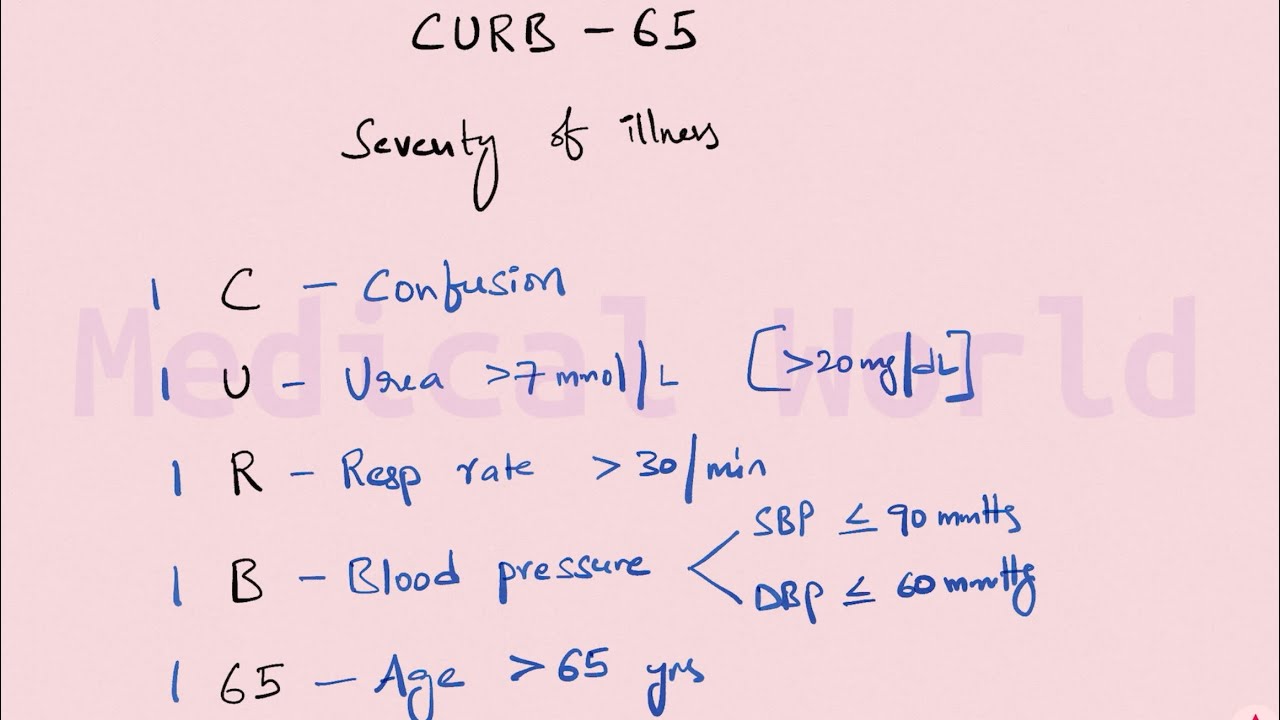 CURB - 65
Severity of illness
1 C - Confusion
1 U - Urea >7 mmol/L [>20mg/dL]
1 R - Resp rate >30/min
1 B - Blood pressure
SBP ≤ 90 mmHg
DBP ≤ 60 mmHg
1 65 - Age >65 yrs
Medical World